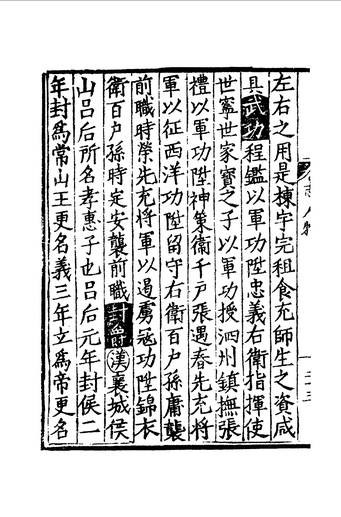 左右之用是棟宇完租食充師生之資咸
具武功程鑑以軍功陞忠義右衛指揮使
世寧世家寶之子以軍功授泗州鎮撫張
禮以軍功陞神策衛千戶張遇春先充將
軍以征西洋功陞留守右衛百戶孫庸襲
前職時榮先充將軍以遏虜冦功陞錦衣
衛百戶孫時定安襲前職封爵漢襄城侯
山呂后所名孝惠子也呂后元年封侯二
年封為常山王更名義三年立為帝更名